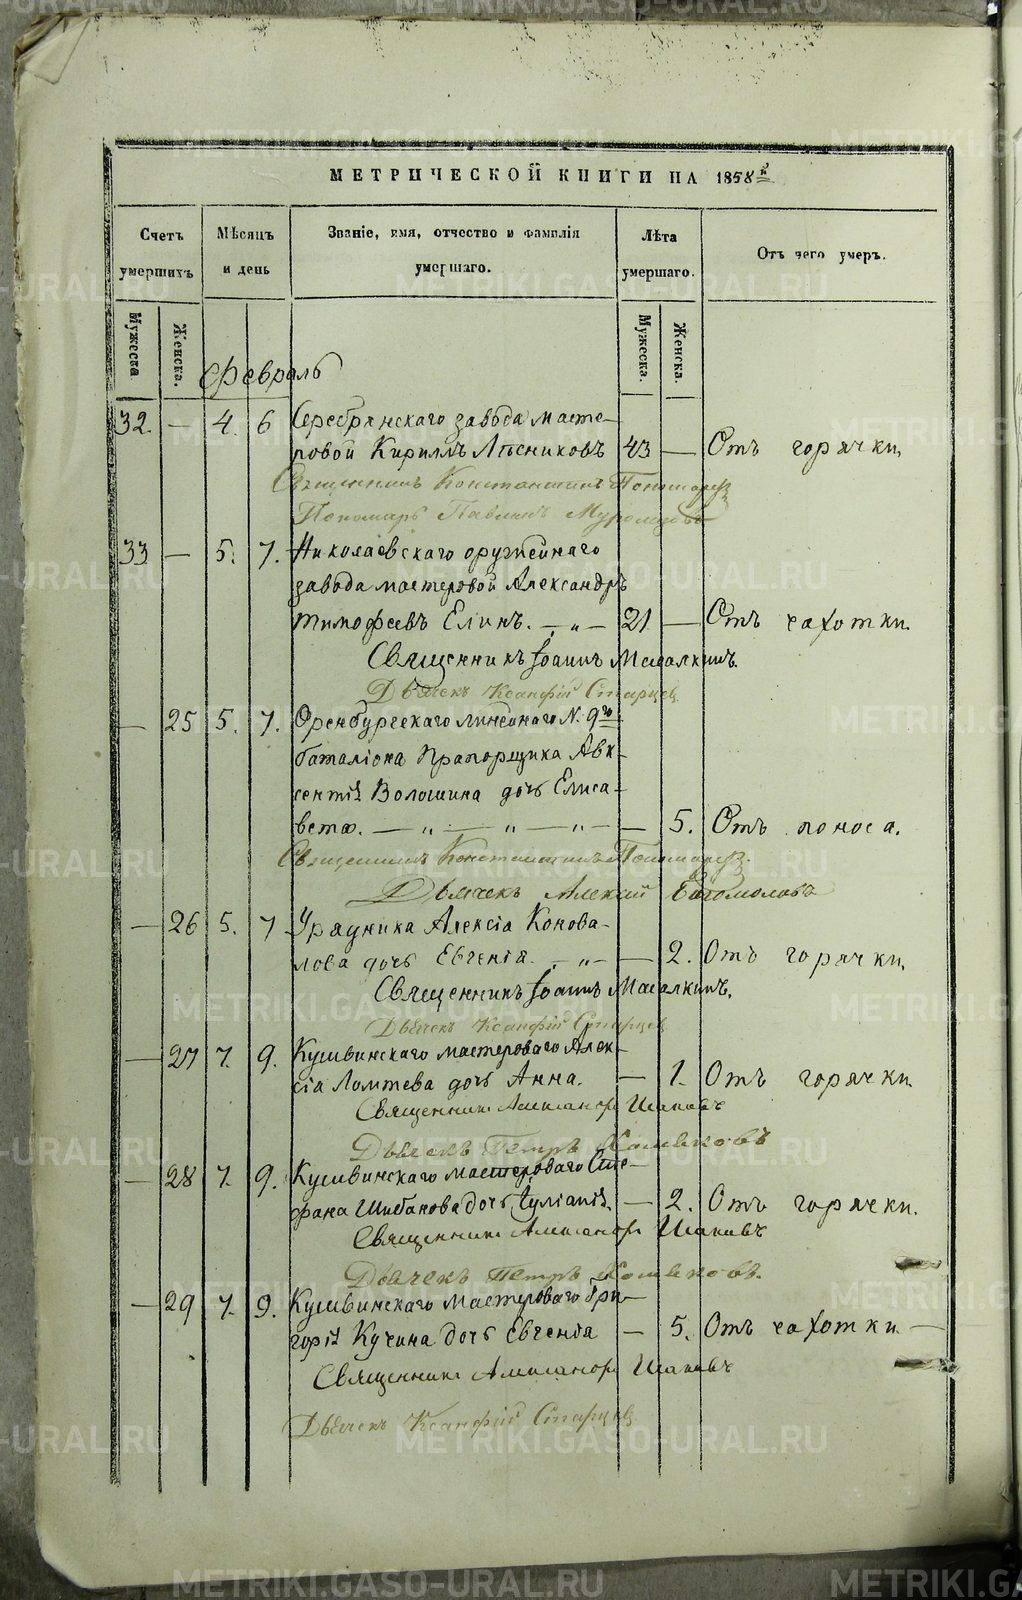 МЕТРИЧЕСКОЙ КНИГИ НА 1858й
Счетъ умершихъ
Мѣсяцъ и день
Званіе, имя, отчество и фамилія умершаго.
Лѣта умершаго.
Отъ чего умеръ.
Мужеска. Женска.
Мужеска. Женска.
Февраль
32. — 4. 6 Серебрянскаго завода масте-
ровой Кириллъ Лѣсниковъ 43 — Отъ горячки.
Священникъ Константинъ Пономарев
Пономарь Павлинъ Муромцовъ
33 — 5. 7. Николаевскаго оружейнаго
завода мастеровой Александръ
Тимофеевъ Елинъ. — „ — 21 — Отъ чахотки.
Священникъ Іоаннъ
Дьячекъ Ксанфій Старцев
— 25 5. 7. Оренбургскаго линейнаго N. 9го
баталіона Прапорщика Авк-
сентія Волошина дочь Елиса-
вета. — „ — „ — „ — — 5. Отъ поноса.
Священникъ Константинъ Пономарев.
Дьячекъ Алексій Богомоловъ
— 26 5. 7 Урядника Алексіа Конова-
лова дочь Евгенія. — „ — — 2. Отъ горячки.
Священникъ Іоаннъ
Дьячекъ Ксанфій Старцев
— 27 7. 9. Кушвинскаго мастероваго Алек-
сіа Ломтева дочь Анна. — 1. Отъ горячки.
Священникъ Александръ
Дьячекъ Петръ Хомяковъ
— 28 7. 9. Кушвинскаго мастероваго Сте-
фана Шибанова дочь Іуліанія. — 2. Отъ горячки.
Священникъ Александръ
Дьячекъ Петръ Хомяковъ.
— 29 7. 9. Кушвинскаго мастероваго Гри-
горія Кучина дочь Евгенія — 5. Отъ чахотки. —
Священникъ Александръ
Дьячекъ Ксанфій Старцев
METRIKI.GASO-URAL.RU